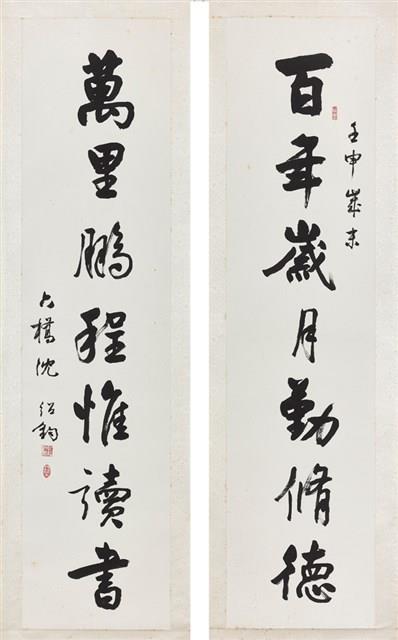 百年歲月勤脩德
壬申歲末
萬里鵬程惟讀書
沈